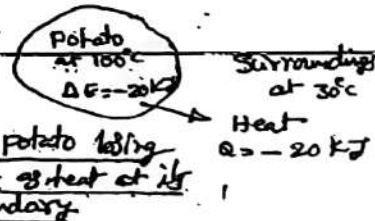 Potato
at 100°c
ΔE=-20KJ
Surroundings
at 30°c
Heat
Q=-20 KJ
Potato losing
of heat at its